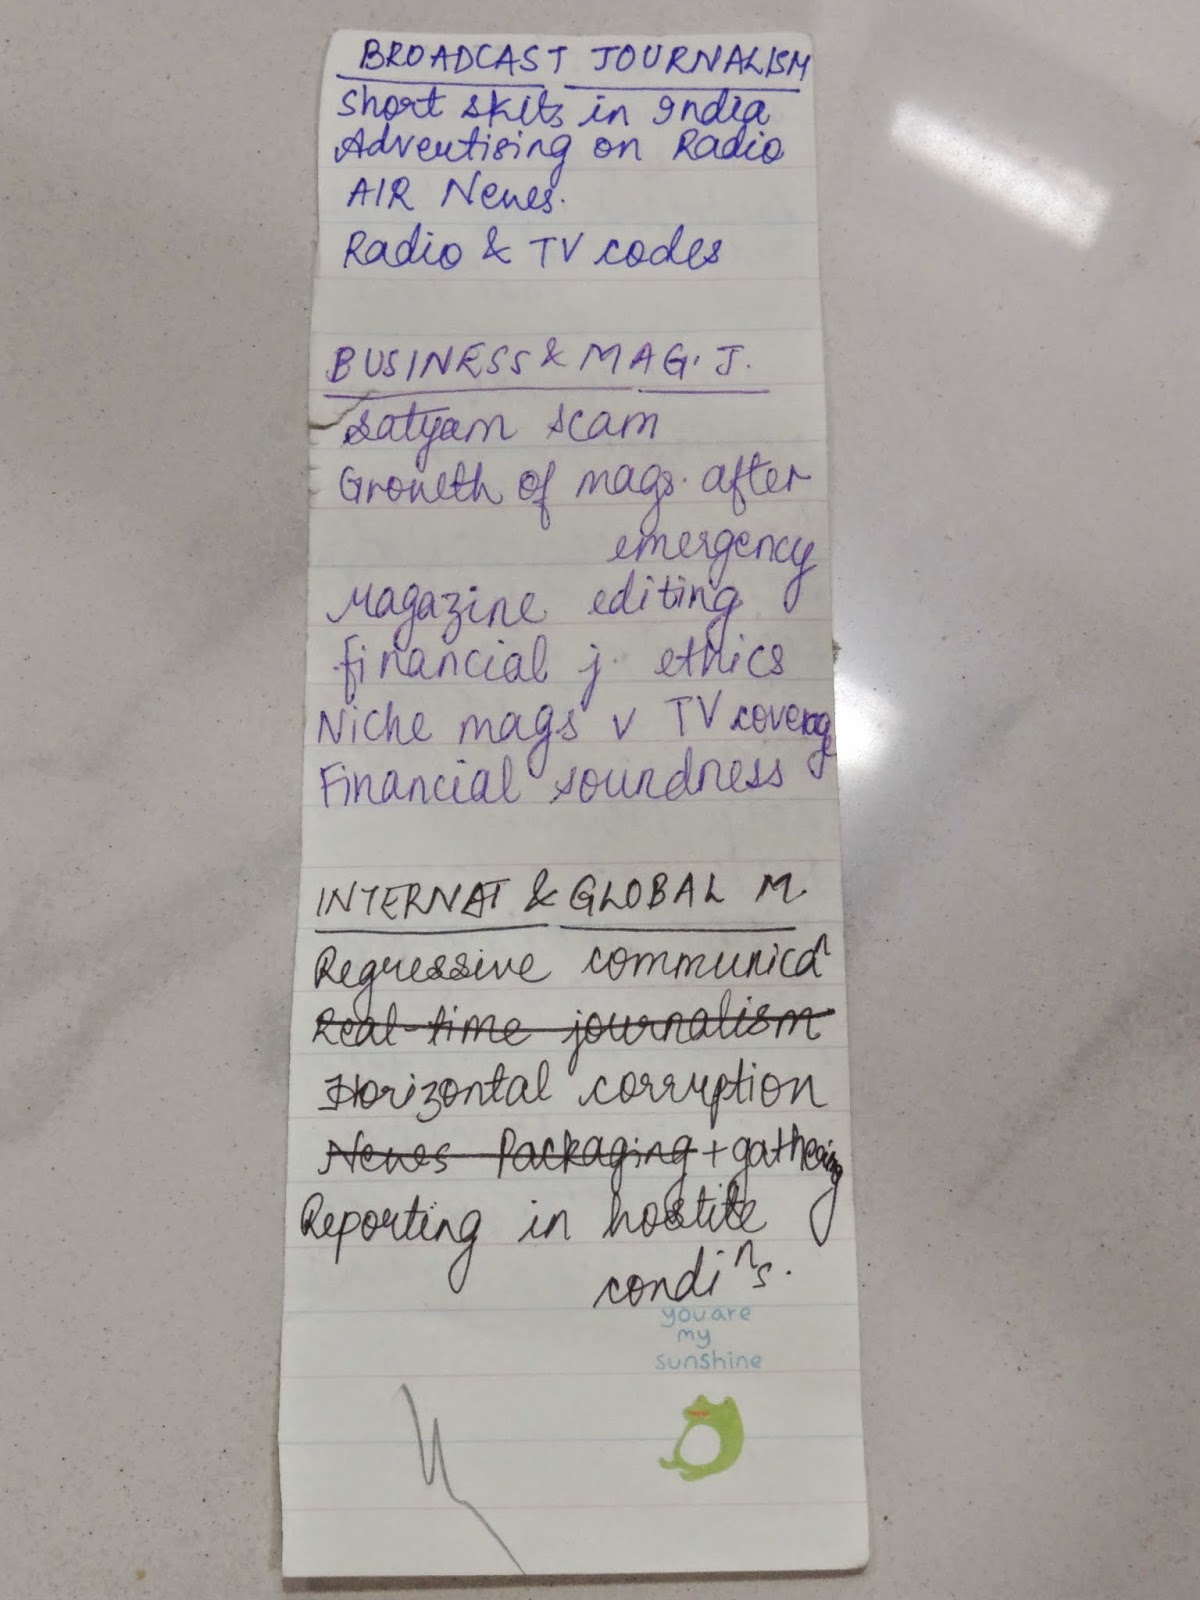 BROADCAST JOURNALISM
Short skits in India
Advertising on Radio
AIR News.
Radio & TV codes
BUSINESS & MAG. J.
Satyam scam
Growth of mags. after
emergency
Magazine editing
Financial j. ethics
Niche mags v TV coverage
Financial soundness
INTERNAT & GLOBAL M.
Regressive communicaⁿ
Real-time journalism
Horizontal corruption
News Packaging + gathering
Reporting in hostile
condiⁿs.
you are
my
sunshine